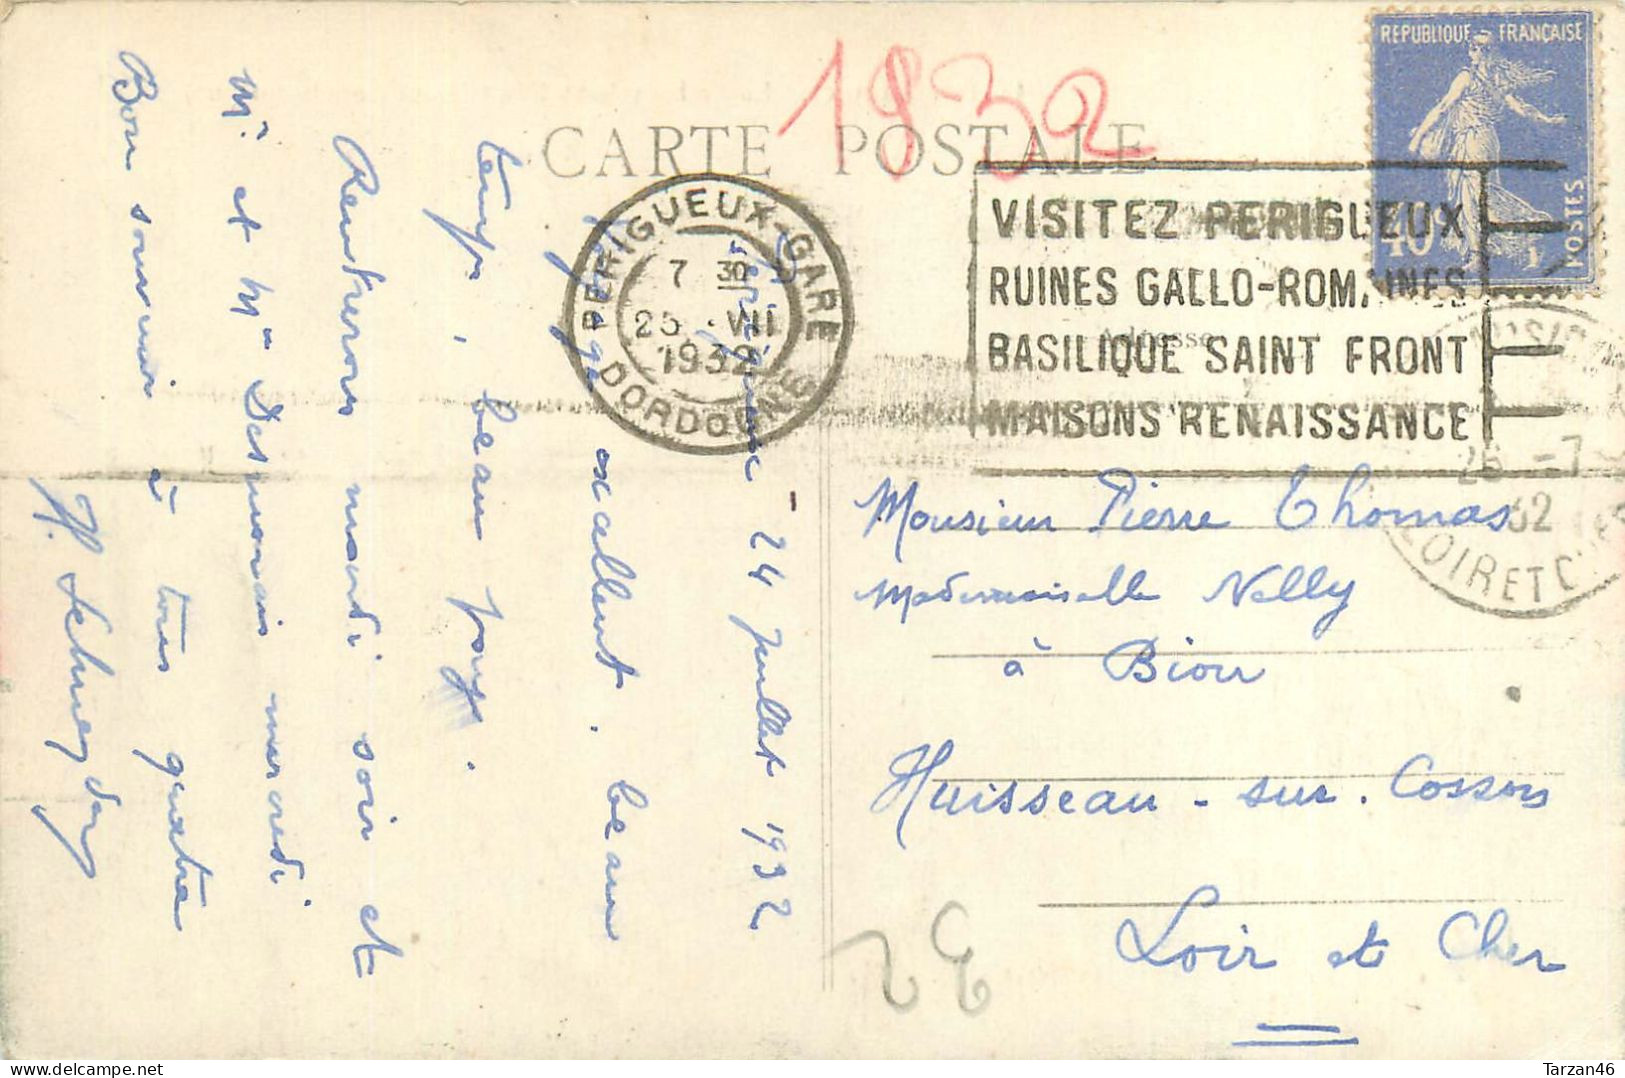 1932
CARTE POSTALE
REPUBLIQUE FRANÇAISE
POSTES
40c
PERIGUEUX-GARE
7 30
25 VII
1932
DORDOGNE
VISITEZ PERIGUEUX
RUINES GALLO-ROMAINES
BASILIQUE SAINT FRONT
MAISONS RENAISSANCE
Adresse
25 -7
32
LOIR ET CHER
Périgueux - 24 Juillet 1932
excellent. beau
temps, beau pays.
Rentrerons mardi soir et
Mr et Me Desquonais mercredi
Bon souvenir à tous quatre
Monsieur Pierre Thomas
Mademoiselle Nelly
à Biou
Huisseau-sur-Cosson
Loir et Cher
32
Tarzan46